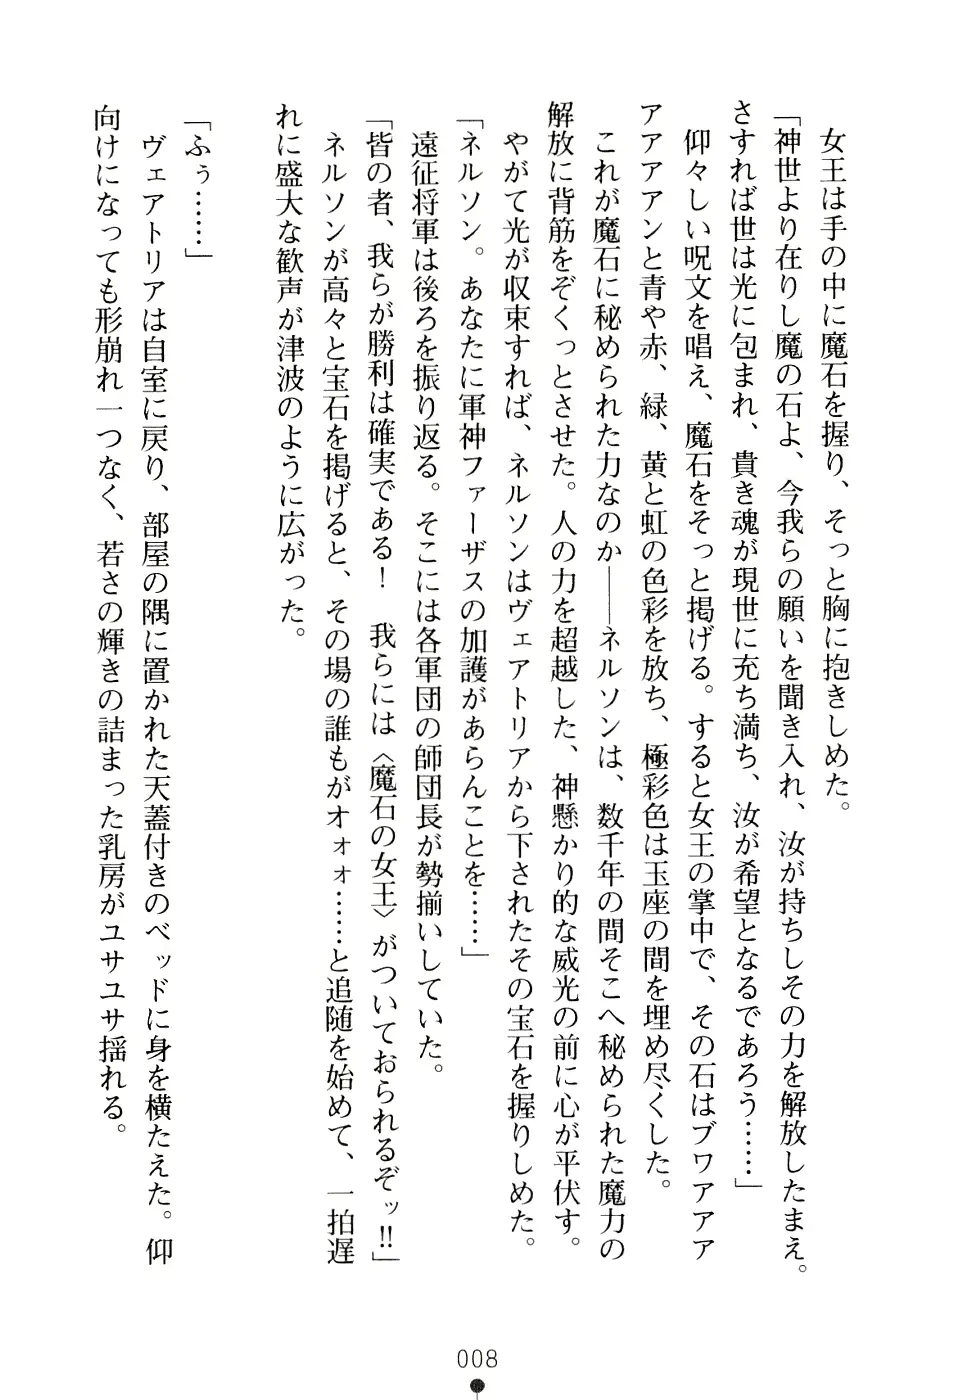 女王は手の中に魔石を握り、そっと胸に抱きしめた。
「神世より在りし魔の石よ、今我らの願いを聞き入れ、汝が持ちしその力を解放したまえ。
さすれば世は光に包まれ、貴き魂が現世に充ち満ち、汝が希望となるであろう……」
仰々しい呪文を唱え、魔石をそっと掲げる。すると女王の掌中で、その石はブワアアア
アアアアンと青や赤、緑、黄と虹の色彩を放ち、極彩色は玉座の間を埋め尽くした。
これが魔石に秘められた力なのか――ネルソンは、数千年の間そこへ秘められた魔力の
解放に背筋をぞくっとさせた。人の力を超越した、神懸かり的な威光の前に心が平伏す。
やがて光が収束すれば、ネルソンはヴェアトリアから下されたその宝石を握りしめた。
「ネルソン。あなたに軍神ファーザスの加護があらんことを……」
遠征将軍は後ろを振り返る。そこには各軍団の師団長が勢揃いしていた。
「皆の者、我らが勝利は確実である！　我らには〈魔石の女王〉がついておられるぞッ!!」
ネルソンが高々と宝石を掲げると、その場の誰もがオォォ……と追随を始めて、一拍遅
れに盛大な歓声が津波のように広がった。
「ふぅ……」
ヴェアトリアは自室に戻り、部屋の隅に置かれた天蓋付きのベッドに身を横たえた。仰
向けになっても形崩れ一つなく、若さの輝きの詰まった乳房がユサユサ揺れる。
008